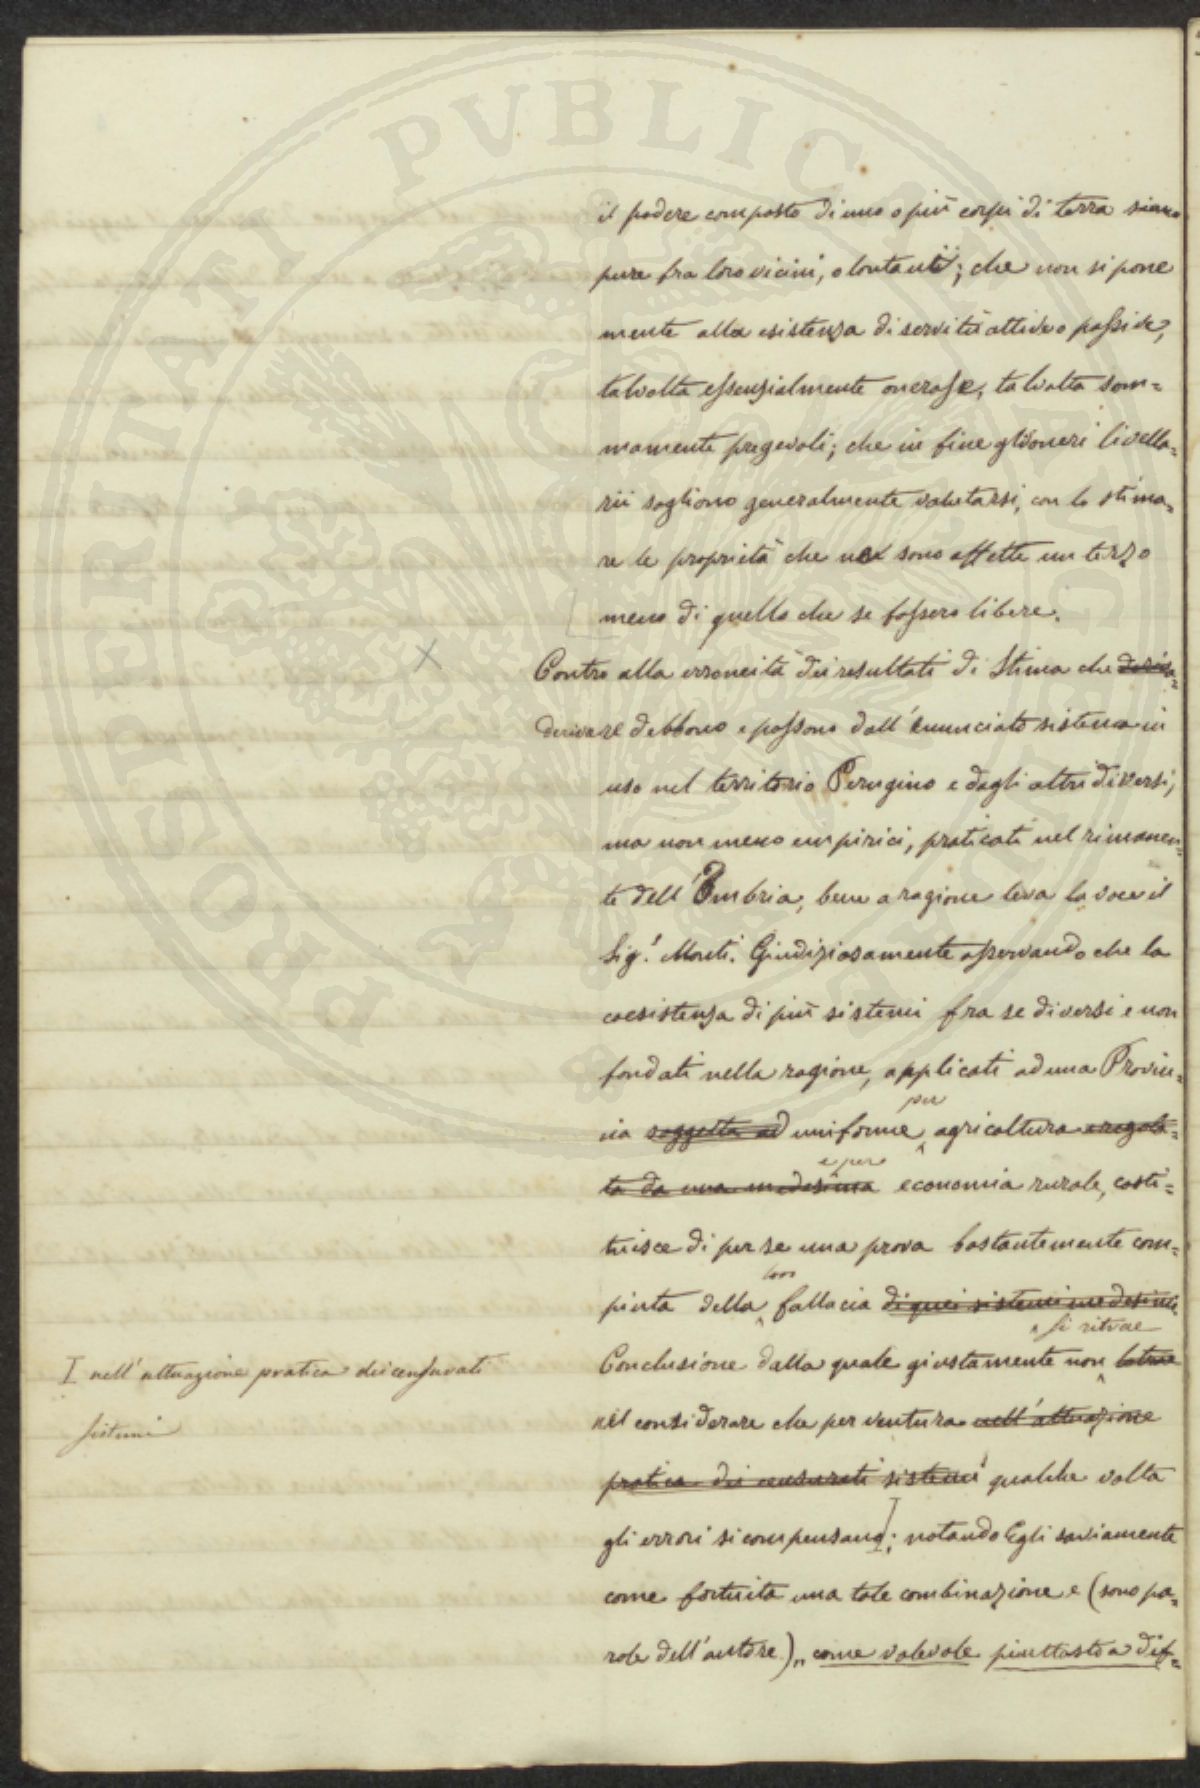 il podere composto di uno o più corpi di terra siano
pure fra loro vicini, o lontani; che non si pone
mente alla esistenza di servitù attive o passive,
talvolta essenzialmente onerose, talvolta som=
mamente pregevoli; che in fine gli oneri livella=
rii sogliono generalmente valutarsi, con lo stima=
re le proprietà che ne sono affette un terzo
meno di quello che se fossero libere.
Contro alla erroneità dei resultati di Stima che
derivare debbono e possono dall'enunciato sistema in
uso nel territorio Perugino e dagli altri diversi,
ma non meno empirici, praticati nel rimanen=
te dell'Umbria, bene a ragione leva la voce il
Sig.r Monti. Giudiziosamente osservando che la
coesistenza di più sistemi fra se diversi e non
fondati nella ragione, applicati ad una Provin=
per
cia soggetta ad uniforme agricoltura e regola=
e per
ta da una medesima economia rurale, costi=
tuisce di per se una prova bastantemente com=
loro
piuta della fallacia di quei sistemi medesimi
si ritrae
Conclusione dalla quale giustamente non
nel considerare che per ventura nell'attuazione
pratica dei censurati sistemi qualche volta
gli errori si compensano; notando Egli saviamente
come fortuita una tale combinazione e (sono pa=
role dell'autore) „ come valevole piuttosto a dif=
I nell'attuazione pratica dei censurati
sistemi
PROSPERITATI PUBLICAE